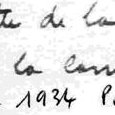 te de la
la
1934 P